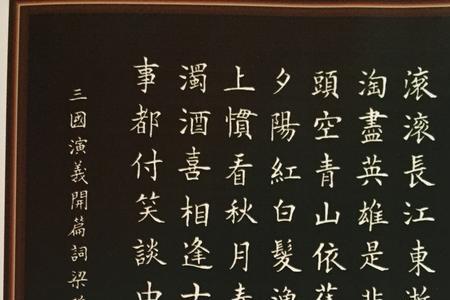 滾滾長江東逝
淘盡英雄是非
頭空青山依舊
夕陽紅白髮漁
上慣看秋月春
濁酒喜相逢
事都付笑談中
三國演義開篇詞梁